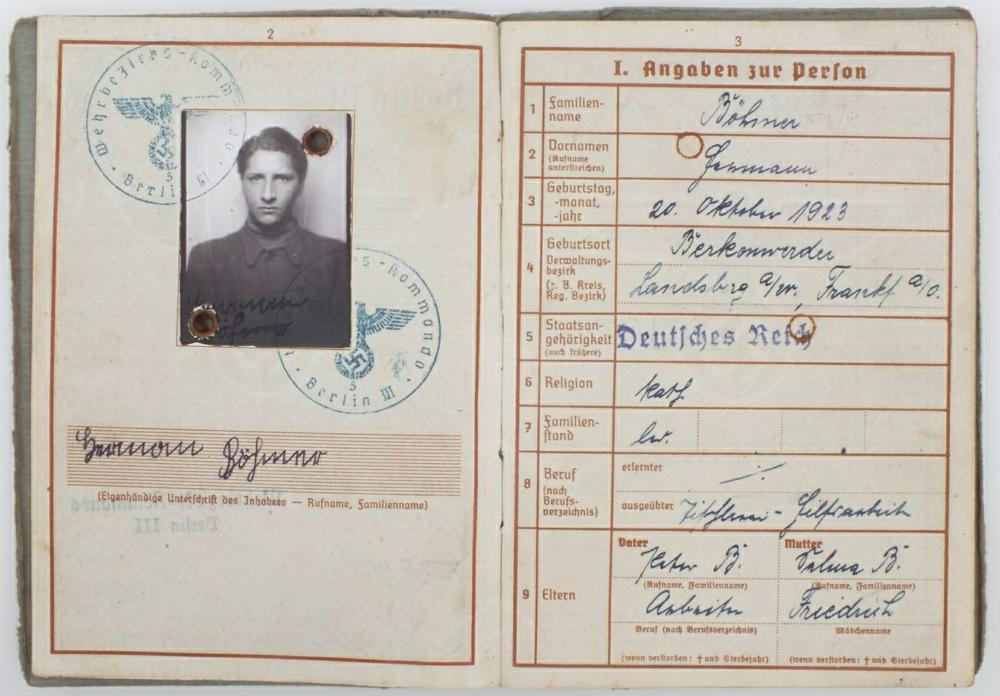 2
Wehrbezirks-Kommando
5
Berlin III
Wehrbezirks-Kommando
5
Berlin III
Hermann
Böhmer
Herman Böhmer
(Eigenhändige Unterschrift des Inhabers — Rufname, Familienname)
3
I. Angaben zur Person
1 Familien-
name
Böhmer
2 Vornamen
(Rufname
unterstreichen)
Hermann
3 Geburtstag,
-monat,
-jahr
20. Oktober 1923
4 Geburtsort
Verwaltungs-
bezirk
(z. B. Kreis,
Reg. Bezirk)
Berkenwerder
Landsberg a/W. Frankf a/O.
5 Staatsan-
gehörigkeit
(auch frühere)
Deutsches Reich
6 Religion
kath
7 Familien-
stand
led.
8 Beruf
(nach
Berufs-
verzeichnis)
erlernter
ausgeübter Tischlerei-Hilfsarbeiter
9 Eltern
Vater
Peter B.
(Rufname, Familienname)
Arbeiter
Beruf (nach Berufsverzeichnis)
(wenn verstorben: † und Sterbejahr)
Mutter
Selma B.
(Rufname, Familienname)
Friedrich
Mädchenname
(wenn verstorben: † und Sterbejahr)